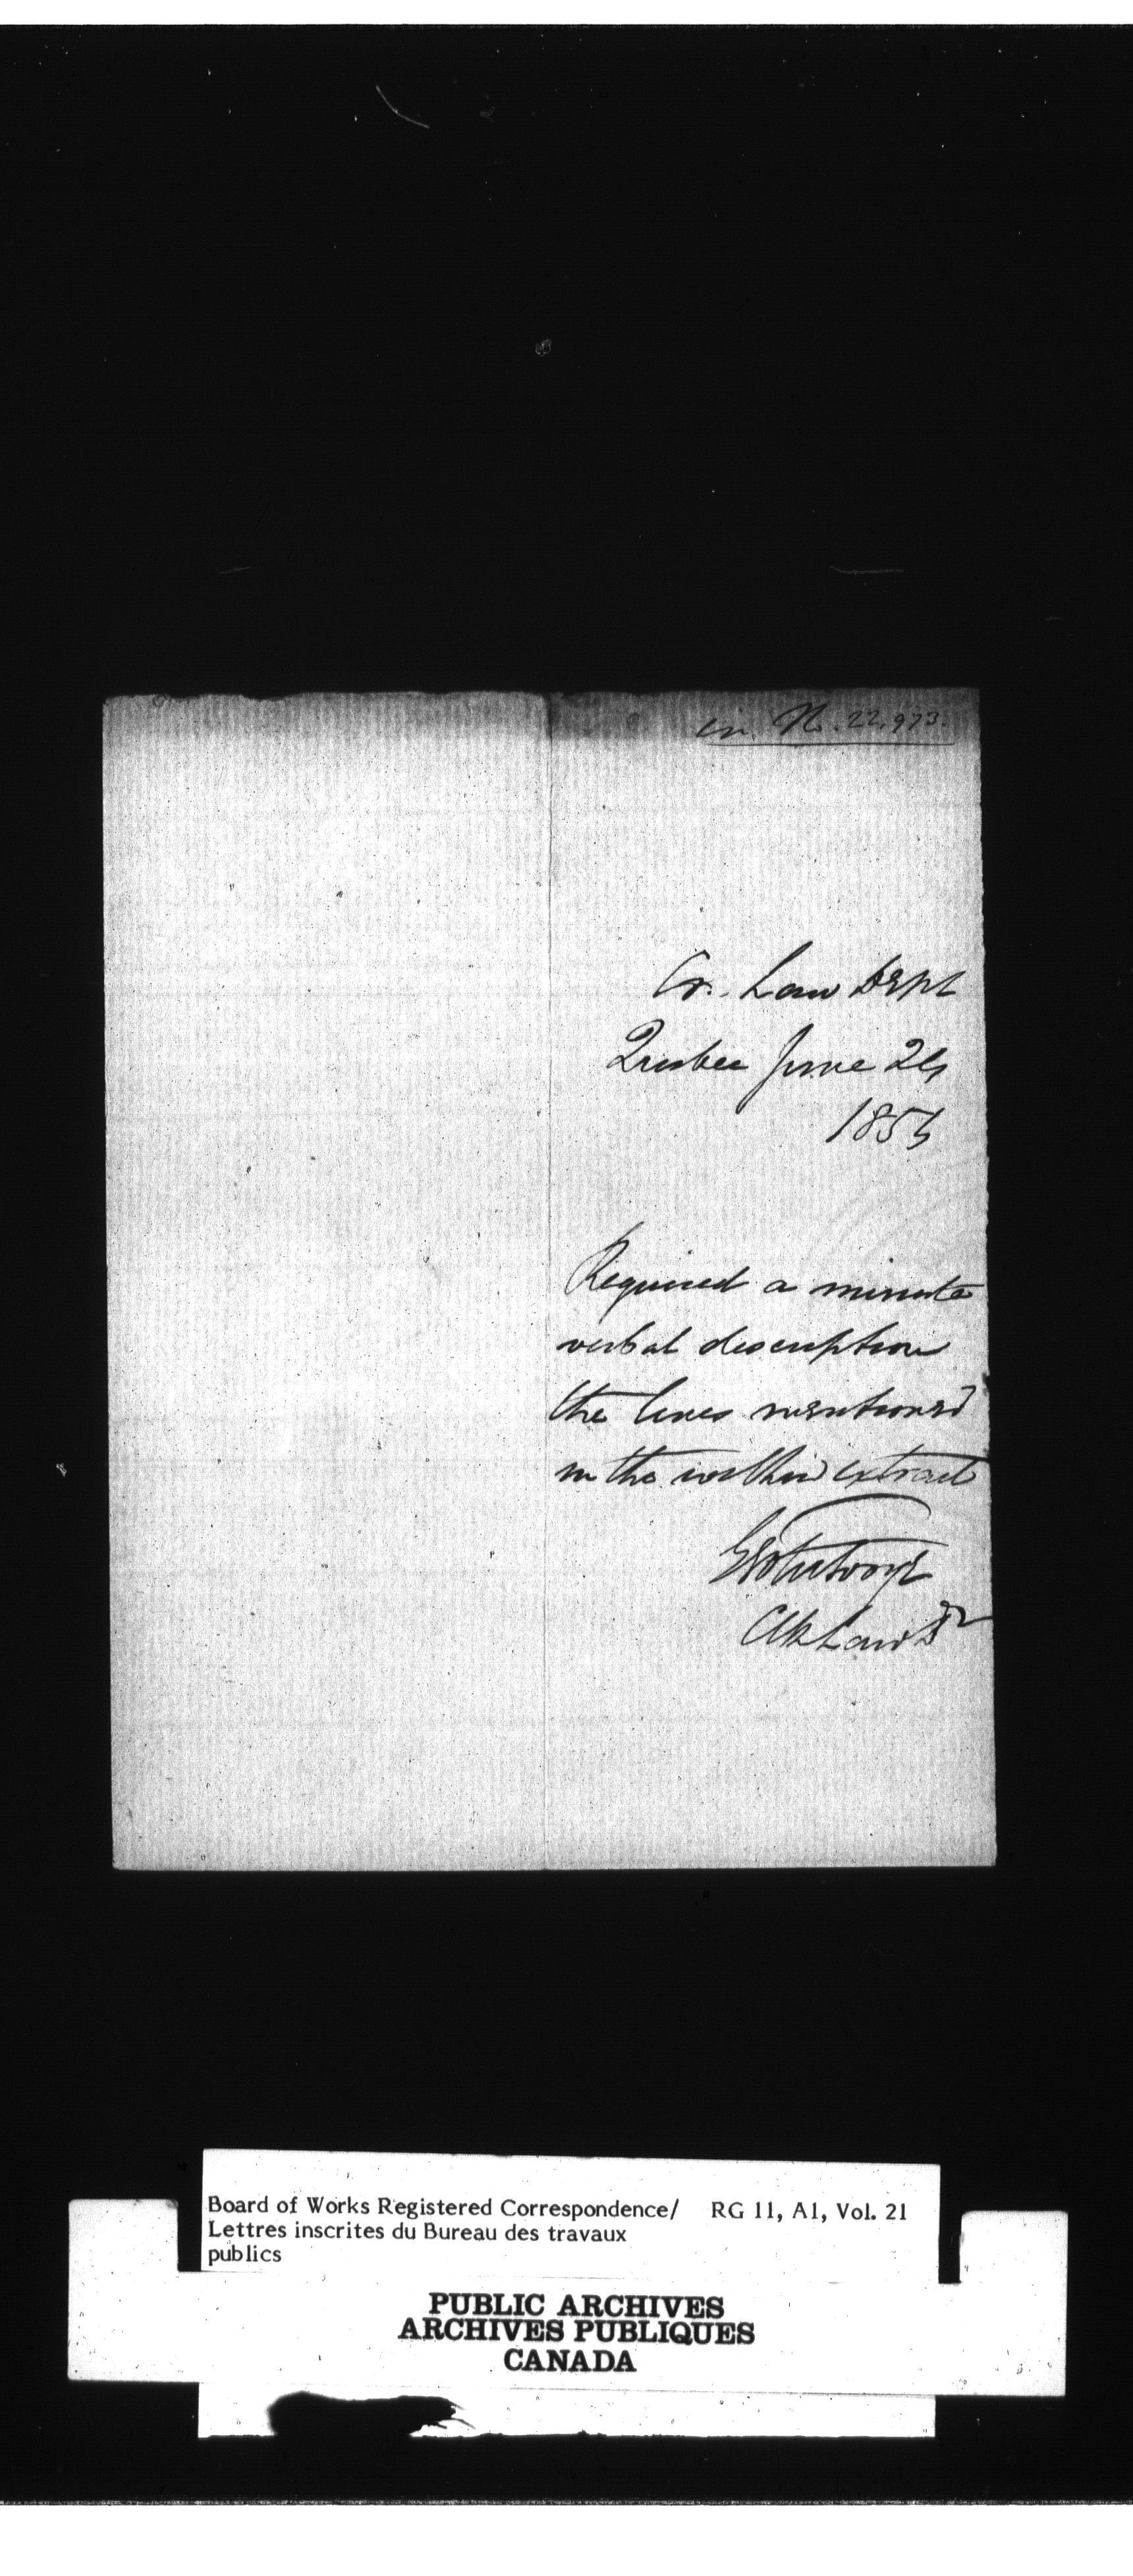 in No. 22,973.
Cr. Law Dept
Quebec June 24
1854
Required a minute
verbal description
the lines mentioned
in the within extract
Clk Law Dt
Board of Works Registered Correspondence/ RG 11, A1, Vol. 21
Lettres inscrites du Bureau des travaux
publics
PUBLIC ARCHIVES
ARCHIVES PUBLIQUES
CANADA